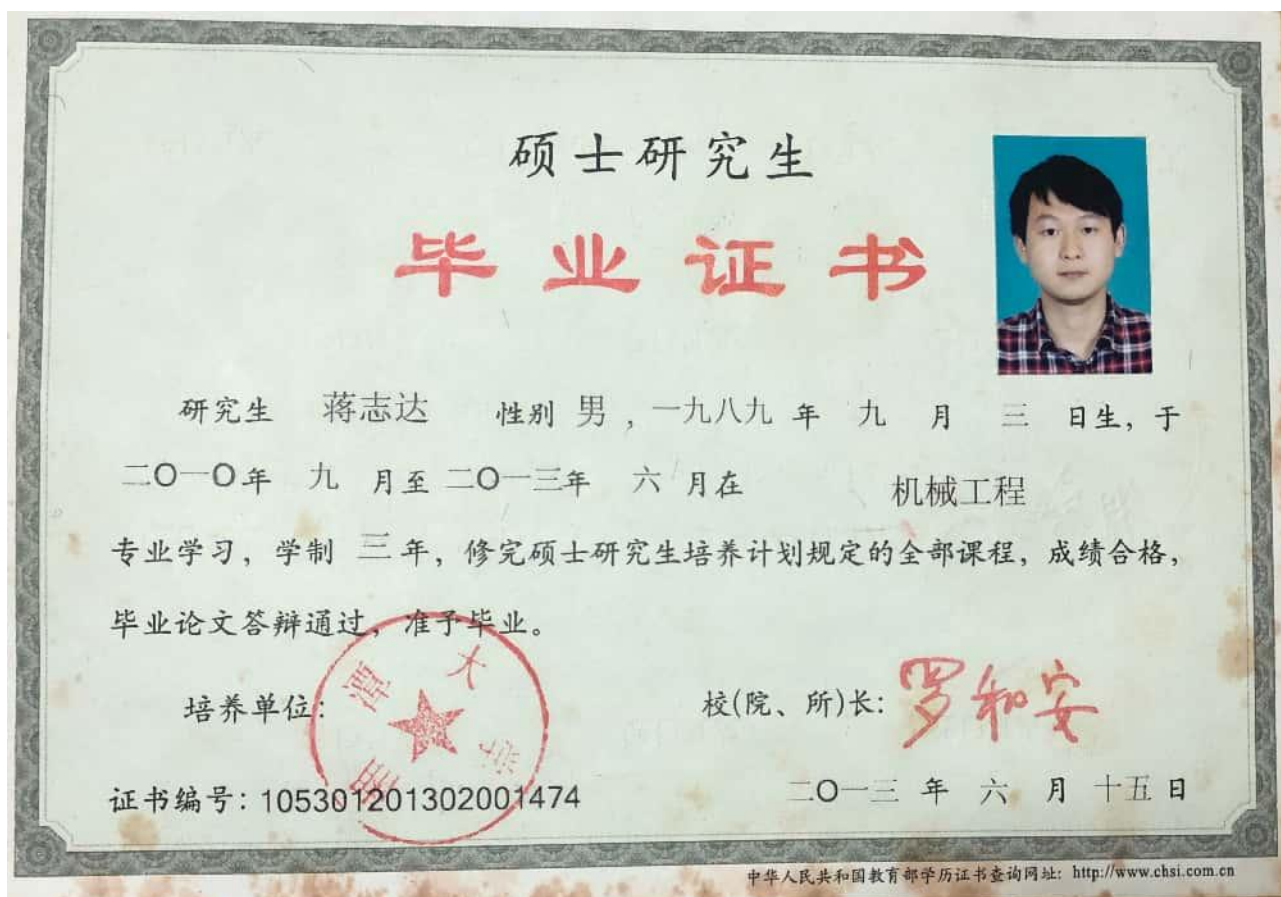 硕士研究生
毕业证书
研究生 蒋志达 性别 男，一九八九 年 九 月 三 日生，于
二〇一〇年 九 月至 二〇一三年 六 月在 机械工程
专业学习，学制 三 年，修完硕士研究生培养计划规定的全部课程，成绩合格，
毕业论文答辩通过，准予毕业。
培养单位：
湘潭大学
校(院、所)长：罗和安
证书编号：105301201302001474
二〇一三 年 六 月 十五 日
中华人民共和国教育部学历证书查询网址：http://www.chsi.com.cn